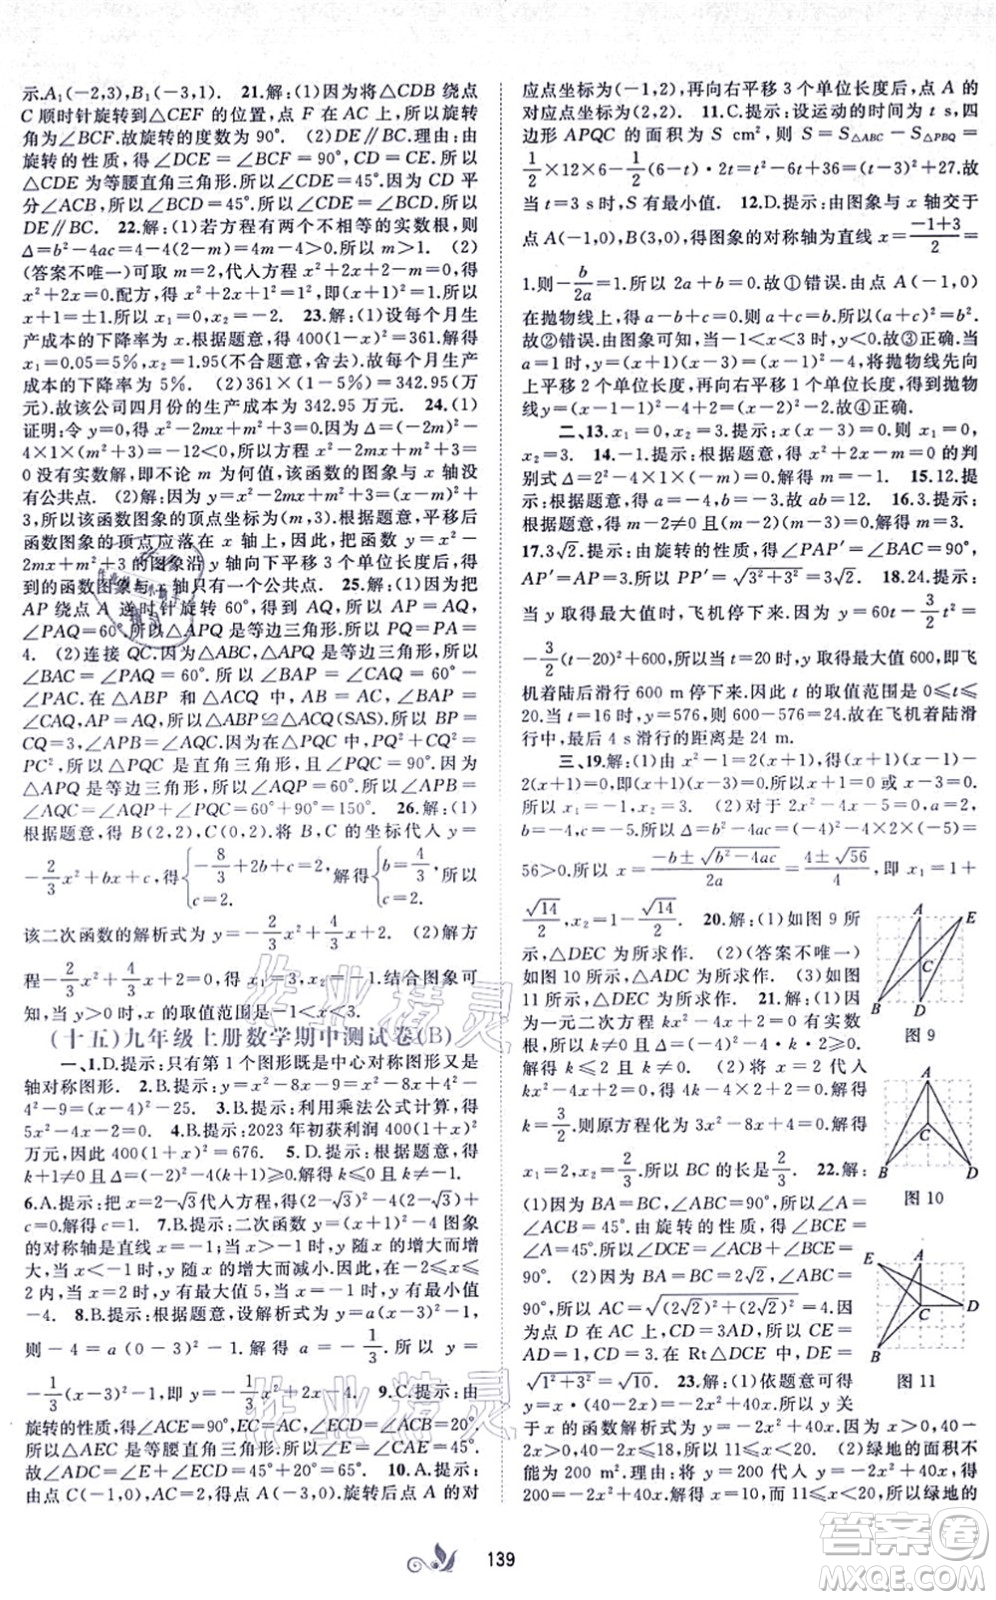 示.A₁(-2,3),B₁(-3,1).　21.解:(1)因为将△CDB 绕点
C 顺时针旋转到△CEF 的位置,点 F 在 AC 上,所以旋转
角为∠BCF.故旋转的度数为 90°.　(2)DE∥BC.理由:由
旋转的性质,得∠DCE=∠BCF=90°,CD=CE.所以
△CDE 为等腰直角三角形.所以∠CDE=45°.因为 CD 平
分∠ACB,所以∠BCD=45°.所以∠CDE=∠BCD.所以
DE∥BC.　22.解:(1)若方程有两个不相等的实数根,则
Δ=b²-4ac=4-4(2-m)=4m-4>0.所以 m>1.　(2)
(答案不唯一)可取 m=2,代入方程 x²+2x+2-m=0,得
x²+2x=0.配方,得 x²+2x+1²=1²,即(x+1)²=1.所以
x+1=±1.所以 x₁=0,x₂=-2.　23.解:(1)设每个月生产
成本的下降率为 x.根据题意,得 400(1-x)²=361.解得
x₁=0.05=5%,x₂=1.95(不合题意,舍去).故每个月生产
成本的下降率为 5%.　(2)361×(1-5%)=342.95(万
元).故该公司四月份的生产成本为 342.95 万元.　24.(1)
证明:令 y=0,得 x²-2mx+m²+3=0.因为 Δ=(-2m)²-
4×1×(m²+3)=-12<0,所以方程 x²-2mx+m²+3=
0 没有实数解,即不论 m 为何值,该函数的图象与 x 轴没
有公共点.　(2)解:y=x²-2mx+m²+3=(x-m)²+
3,所以该函数图象的顶点坐标为(m,3).根据题意,平移后
函数图象的顶点应落在 x 轴上,因此,把函数 y=x²-
2mx+m²+3 的图象沿 y 轴向下平移 3 个单位长度后,得
到的函数图象与 x 轴只有一个公共点.　25.解:(1)因为把
AP 绕点 A 逆时针旋转 60°,得到 AQ,所以 AP=AQ,
∠PAQ=60°.所以△APQ 是等边三角形.所以 PQ=PA=
4.　(2)连接 QC.因为△ABC,△APQ 是等边三角形,所以
∠BAC=∠PAQ=60°.所以∠BAP=∠CAQ=60°-
∠PAC.在△ABP 和△ACQ 中,AB=AC,∠BAP=
∠CAQ,AP=AQ,所以△ABP≌△ACQ(SAS).所以 BP=
CQ=3,∠APB=∠AQC.因为在△PQC 中,PQ²+CQ²=
PC²,所以△PQC 是直角三角形,且∠PQC=90°.因为
△APQ 是等边三角形,所以∠AQP=60°.所以∠APB=
∠AQC=∠AQP+∠PQC=60°+90°=150°.　26.解:(1)
根据题意,得 B(2,2),C(0,2).将 B,C 的坐标代入 y=
-2/3x²+bx+c,得{-8/3+2b+c=2, c=2. 解得{b=4/3, c=2. 所以
该二次函数的解析式为 y=-2/3x²+4/3x+2.　(2)解方
程-2/3x²+4/3x+2=0,得 x₁=3,x₂=-1.结合图象可
知,当 y>0 时,x 的取值范围是-1<x<3.
(十五)九年级上册数学期中测试卷(B)
一、1.D.提示:只有第 1 个图形既是中心对称图形又是
轴对称图形.　2.B.提示:y=x²-8x-9=x²-8x+4²-
4²-9=(x-4)²-25.　3.B.提示:利用乘法公式计算,得
5x²-4x-4=0.　4.B.提示:2023 年初获利润 400(1+x)²
万元,因此 400(1+x)²=1 000.　5.D.提示:根据题意,得
k+1>0 且 Δ=(-2)²-4(k+1)≥0.解得 k≤0 且 k≠-1.
6.A.提示:把 x=2-√3代入方程,得(2-√3)²-4(2-√3)+
c=0.解得 c=1.　7.B.提示:二次函数 y=(x-1)²-4 图象
的对称轴是直线 x=1,当 x>1 时,y 随 x 的增大而增大,
当 x<1 时,y 随 x 的增大而减小.因为 1 在-2≤x≤
2 内,所以当-2≤x≤2 时,函数 y=(x-1)²-4 的最小值为
-4.　8.B.提示:根据题意,设解析式为 y=a(x-3)²-1,
则 -4=a(0-3)²-1.解得 a=-1/3.所以 y=
-1/3(x-3)²-1,即 y=-1/3x²+2x-4.　9.C.提示:由
旋转的性质,得∠ACE=90°,EC=AC,∠ECD=∠ACB=20°.
所以△AEC 是等腰直角三角形.所以∠E=∠CAE=45°.
故∠ADC=∠E+∠ECD=45°+20°=65°.　10.A.提示:
由点 C(-1,0),AC=2,得点 A(-3,0).旋转后点 A 的对
应点坐标为(-1,2),再向右平移 3 个单位长度后,点 A 的
对应点坐标为(2,2).　11.C.提示:设运动的时间为 t s,四
边形 APQC 的面积为 S cm²,则 S=S△ABC-S△PBQ=
1/2×12×6-1/2(6-t)·2t=t²-6t+36=(t-3)²+27.故
当 t=3 s时,S 有最小值.　12.D.提示:由图象与 x 轴交于
点 A(-1,0),B(3,0),得图象的对称轴为直线 x=(-1+3)/2=
1.则-b/2a=1.所以 2a+b=0.故①错误.由点 A(-1,0)
在抛物线上,得 a-b+c=0,即 a+c=b.所以(a+c)²=b².
故②错误.由图象可知,当-1<x<3 时,y<0.故③正确.当
a=1 时,y=(x+1)(x-3)=(x-1)²-4,将抛物线先向
上平移 2 个单位长度,再向右平移 1 个单位长度,得到抛物
线y=(x-1-1)²-4+2=(x-2)²-2.故④正确.
二、13.x₁=0,x₂=3.提示:x(x-3)=0.所以 x₁=0,
x₂=3.　14.-1.提示:根据题意,得 x²+2x-m=0 的判
别式 Δ=2²-4×1×(-m)=0.解得 m=-1.　15.12.提
示:根据题意,得 a=-4,b=-3.故 ab=12.　16.3.提示:
根据题意,得 m²-2m-1=2 且 m-2≠0.解得 m=3.
17.3√2.提示:由旋转的性质,得∠PAP′=∠BAC=90°,
AP′=AP=3.所以 PP′=√(3²+3²)=3√2.　18.24.提示:
当 y 取得最大值时,飞机停下来.因为 y=60t-3/2t²=
-3/2(t-20)²+600,所以当 t=20 时,y 取得最大值 600,即飞
机着陆后滑行 600 m 停下来.因此 t 的取值范围是 0≤t≤
20.当 t=16 时,y=576,则 600-576=24.故在飞机着陆滑
行中,最后 4 s 滑行的距离是 24 m.
三、19.解:(1)由 x²-1=2(x+1),得(x+1)(x-1)-
2(x+1)=0,即(x+1)(x-3)=0,则 x+1=0 或 x-3=0.
所以 x₁=-1,x₂=3.　(2)对于 2x²-4x-5=0,a=2,
b=-4,c=-5.所以 Δ=b²-4ac=(-4)²-4×2×(-5)=
56>0.所以 x=(-b±√(b²-4ac))/2a=(4±√56)/4,即 x₁=1+
√14/2,x₂=1-√14/2.　20.解:(1)如图 9 所
示,△DEC 为所求作.　(2)(答案不唯一)
如图 10 所示,△ADC 为所求作.　(3)如图
11 所示,△DEC 为所求作.　21.解:(1)因
为一元二次方程有实数根,所以 Δ≥0.
解得 k≤2.　(2)因为 k 为正整数,
所以 k=2.
k=3/2.则原方程化为 3x²-8x+4=0.解得
x₁=2,x₂=2/3.所以 BC 的长是2/3.　22.解:
(1)因为 BA=BC,∠ABC=90°,所以∠A=
∠ACB=45°.由旋转的性质,得∠BCE
=∠A=45°.所以∠DCE=∠ACB+∠BCE=
90°.　(2)因为 BA=BC=2√2,∠ABC=
90°,所以 AC=√((2√2)²+(2√2)²)=4.因
为点 D 在 AC 上,CD=3AD,所以 CE=
AD=1,CD=3.在 Rt△DCE 中,DE=
√(1²+3²)=√10.　23.解:(1)依题意可得
y=x·(40-2x)=-2x²+40x.所以 y 关
于 x 的函数解析式为 y=-2x²+40x.由 x>0,40-
2x>0,40-2x≤18,得 11≤x<20.　(2)绿地的面积不
能为 200 m².理由:将 y=200 代入 y=-2x²+40x,得
200=-2x²+40x.解得 x=10.因为 11≤x<20,所以绿地的
A
E
C
B
D
图 9
A
C
B
D
图 10
E
A
C
D
B
图 11
作业精灵
作业精灵
139
答案卷
MXQE.COM